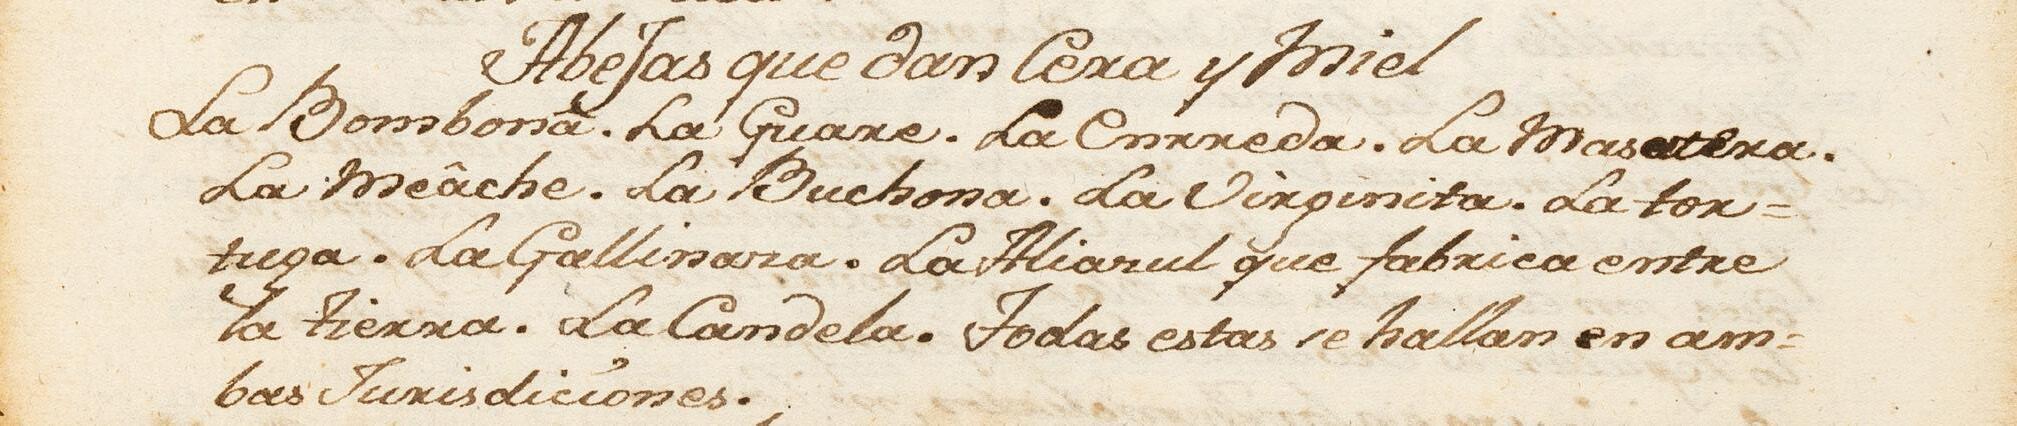 Abejas que dan Cera y Miel
La Bombonâ. La Guare. La Enrreda. La Masatera.
La Meâche. La Buchona. La Virginita. La tor=
tuga. La Gallinaza. La Aliazul que fabrica entre
la tierra. La Candela. Todas estas se hallan en am=
bas Jurisdiciones.